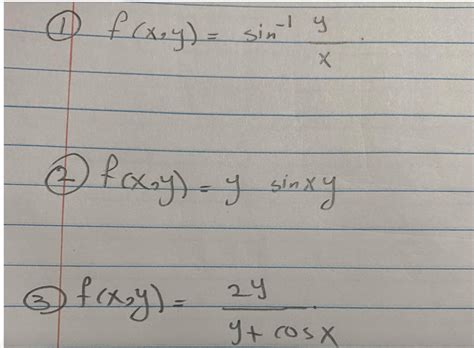 ① f(x,y) = sin⁻¹ y/x.
② f(x,y) = y sinxy
③ f(x,y) = 2y/(y+cosx)